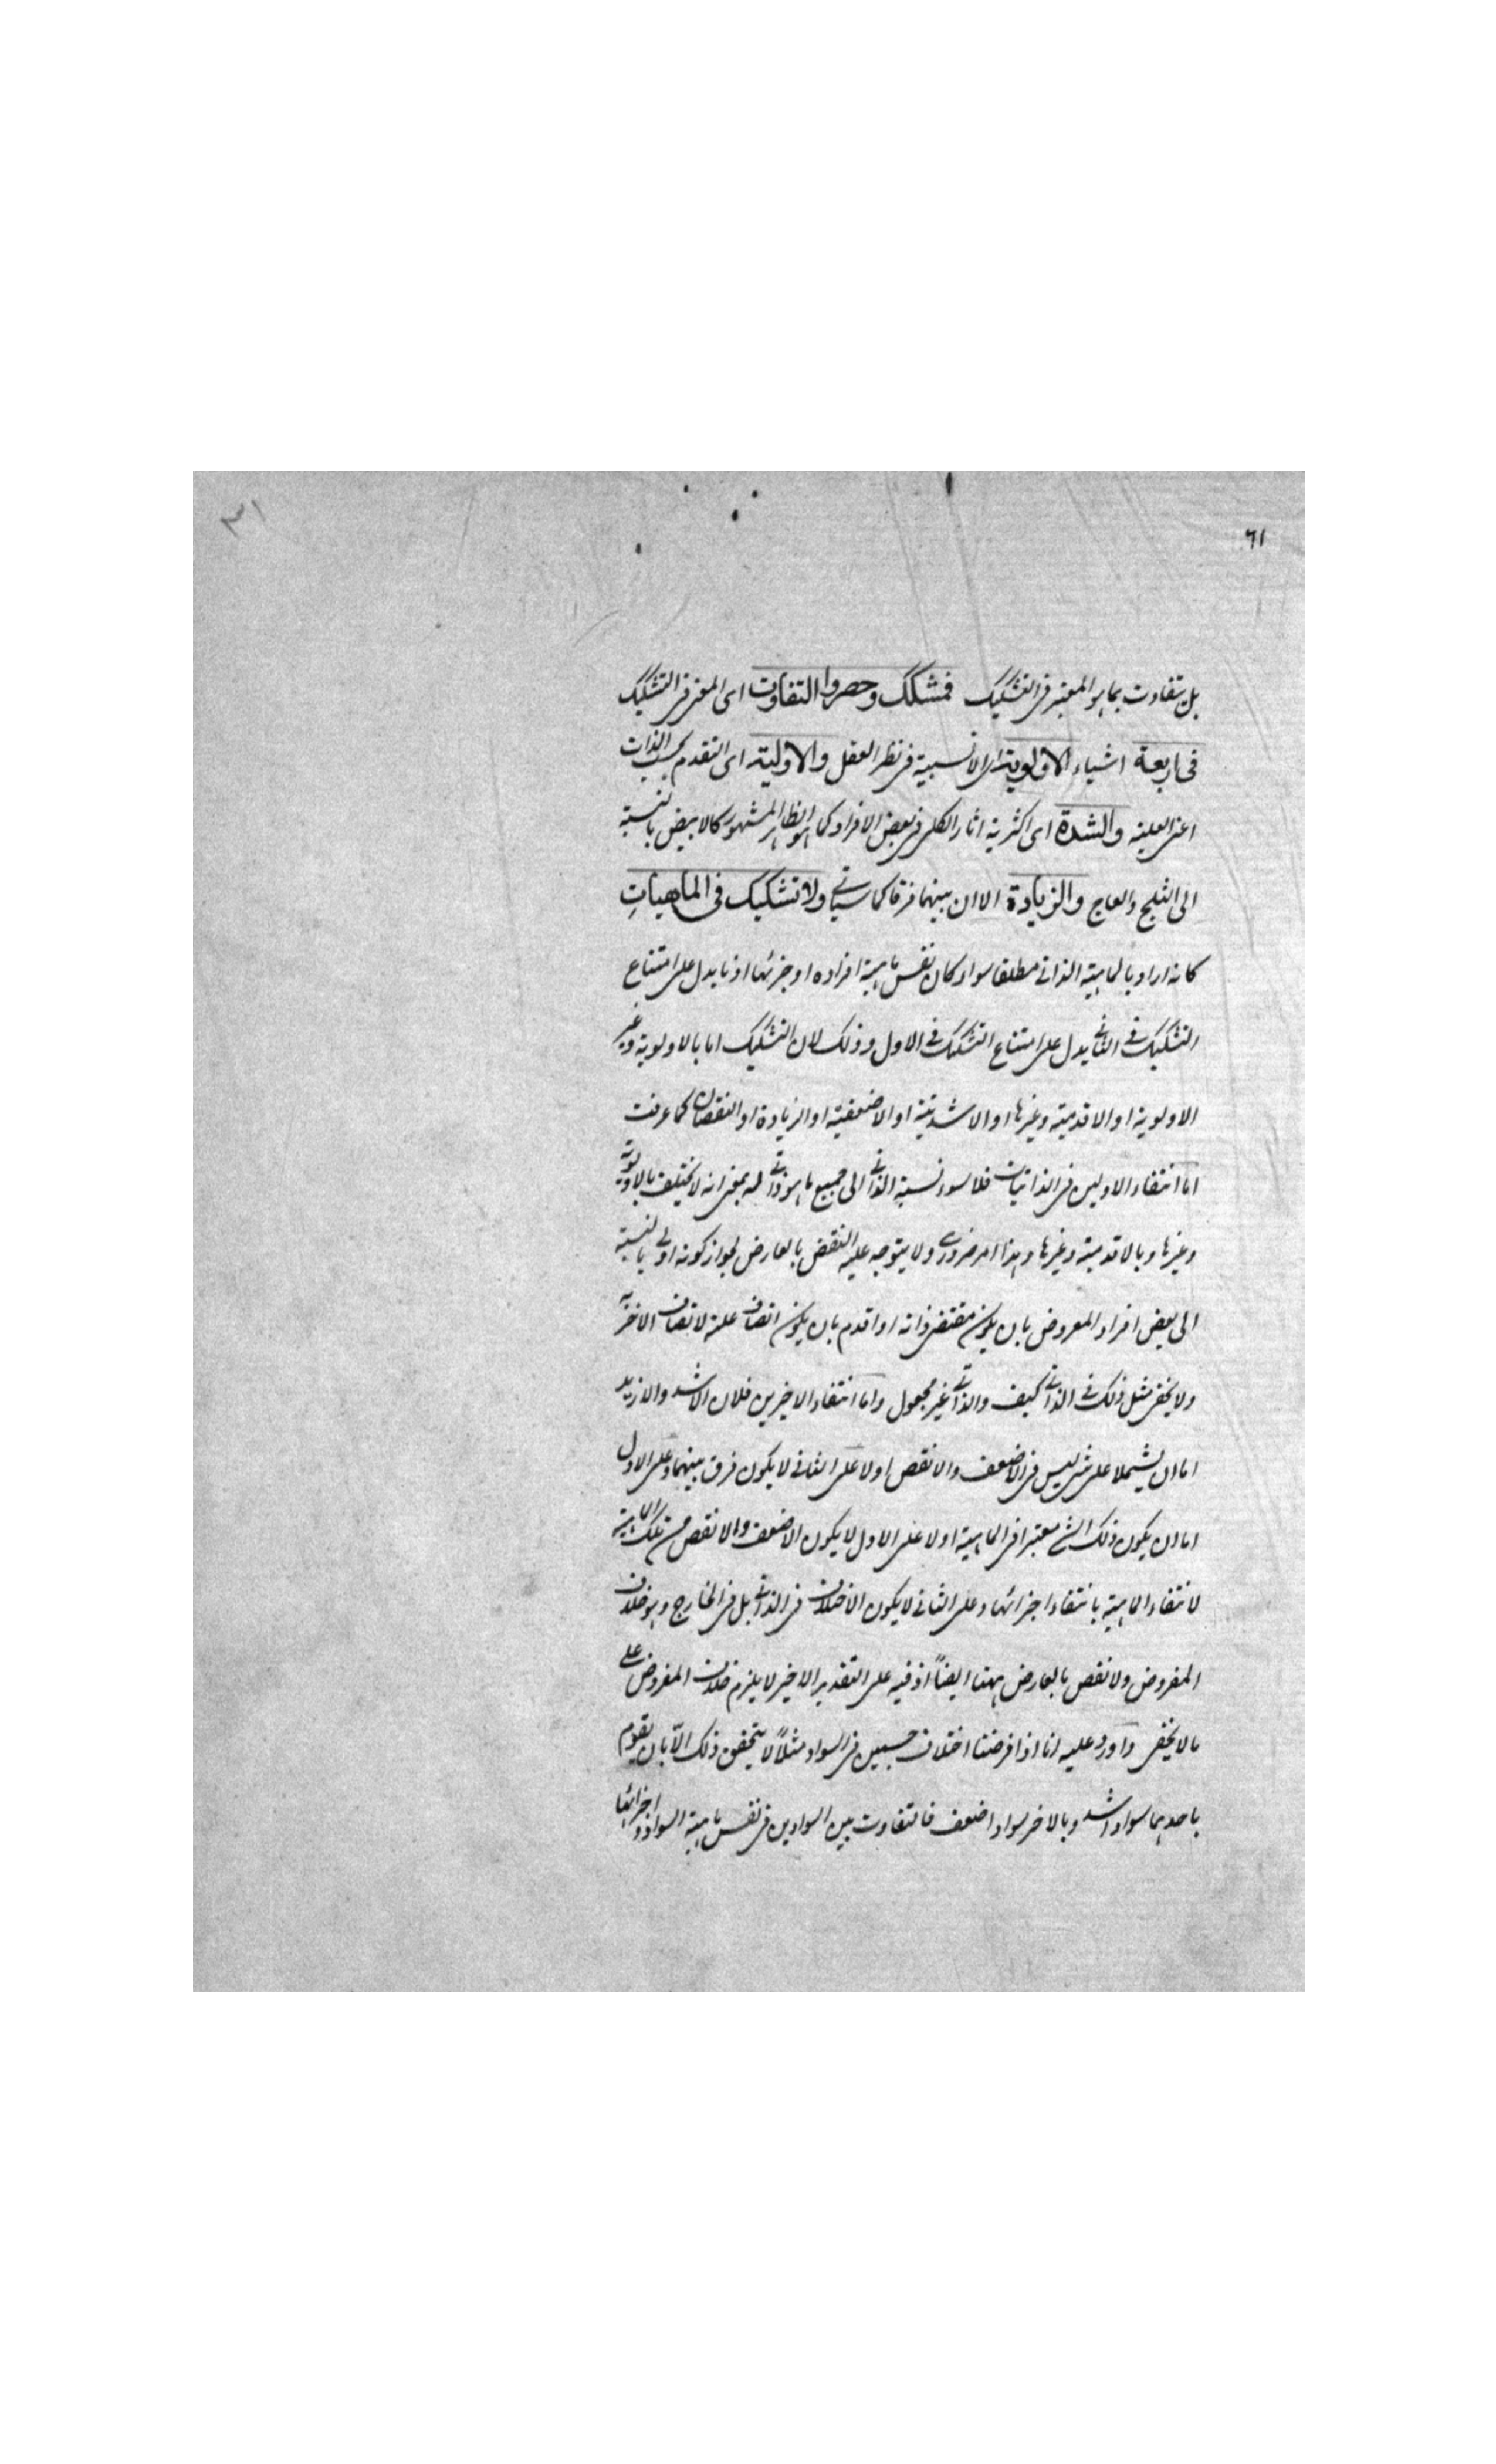 ٦١
٣١
بل يتفاوت بما هو المعتبر فى التشكيك فمشكك وحصروا التفاوت اى المعتبر فى التشكيك
فى اربعة اشياء الاولوية اى الانسبية فى نظر العقل والاولية اى التقدم بحسب الذات
اعنى العلية والشدة اى اكثرية اثار الكلى فى بعض الافراد كما هو الظاهر المشهور كالابيض بالنسبة
الى الثلج والعاج والزيادة الا ان بينهما فرقا كما سياتى ولا تشكيك فى الماهيات
كانه اراد بالماهية الذاتى مطلقا سواء كان نفس ماهية افراده او جزئها اذ ما يدل على امتناع
التشكيك فى الثانى يدل على امتناع التشكيك فى الاول وذلك لان التشكيك اما بالاولوية وغير
الاولوية او الاقدمية وغيرها او الاشدية او الاضعفية او الزيادة او النقصان كما عرفت
اما انتفاء الاولين فى الذاتيات فلاسواء نسبة الذاتى الى جميع ما هو ذاتى له بمعنى انه لا يختلف بالاولوية
وغيرها وبالاقدمية وغيرها وهذا امر ضرورى ولا يتوجه عليه النقض بالعارض لجواز كونه اولى بالنسبة
الى بعض افراد المعروض بان يكون مقتضى ذاته او اقدم بان يكون اتصافه علة لاتصاف الاخر به
ولا يخفى مثل ذلك فى الذاتى كيف والذاتى غير مجعول واما انتفاء الاخيرين فلان الاشد والازيد
اما ان يشتملا على شئ ليس فى الاضعف والانقص اولا على الثانى لا يكون فرق بينهما وعلى الاول
اما ان يكون ذلك الشئ معتبرا فى الماهية اولا على الاول لا يكون الاضعف والانقص من تلك الماهية
لانتفاء الماهية بانتفاء اجزائها وعلى الثانى لا يكون الاختلاف فى الذاتى بل فى الخارج وهو خلاف
المفروض ولا نقض بالعارض ههنا ايضاً اذ فيه على التقدير الاخير لا يلزم خلاف المفروض على
ما لا يخفى واورد عليه انا اذا فرضنا اختلاف جسمين فى السواد مثلاً لا يتحقق ذلك الّا بان يقوم
باحدهما سواد اشد وبالاخر سواد اضعف فالتفاوت بين السوادين فى نفس ماهية السواد او اجزائها